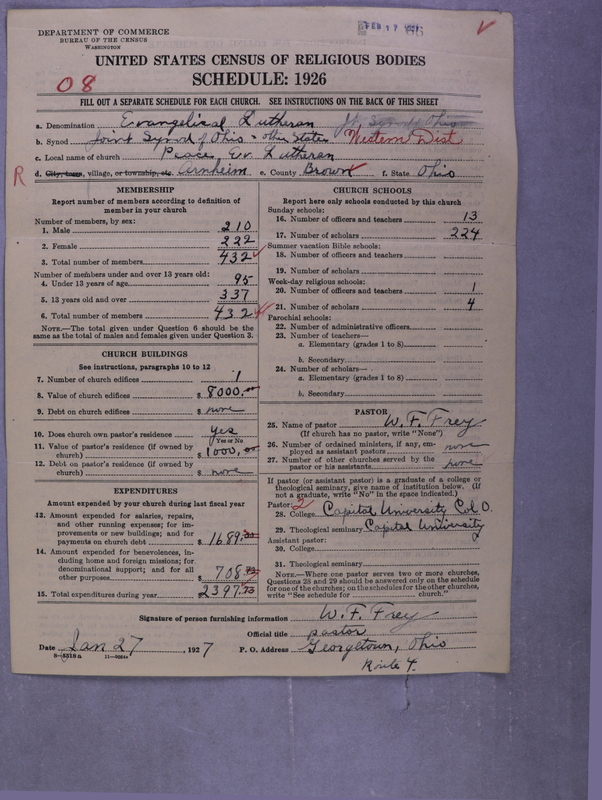 DEPARTMENT OF COMMERCE
BUREAU OF THE CENSUS
WASHINGTON
FEB 17
UNITED STATES CENSUS OF RELIGIOUS BODIES
SCHEDULE: 1926
08
FILL OUT A SEPARATE SCHEDULE FOR EACH CHURCH. SEE INSTRUCTIONS ON THE BACK OF THIS SHEET
a. Denomination Evangelical Lutheran Jt. Synod of Ohio
b. Synod Joint Synod of Ohio & other States Western Dist
c. Local name of church Peace, Ev. Lutheran
R d. City, town, village, or township, etc. Arnheim e. County Brown f. State Ohio
MEMBERSHIP
Report number of members according to definition of member in your church
Number of members, by sex:
1. Male 210
2. Female 222
3. Total number of members 432
Number of members under and over 13 years old:
4. Under 13 years of age 95
5. 13 years old and over 337
6. Total number of members 432
NOTE.—The total given under Question 6 should be the same as the total of males and females given under Question 3.
CHURCH BUILDINGS
See instructions, paragraphs 10 to 12
7. Number of church edifices 1
8. Value of church edifices $ 8000.00
9. Debt on church edifices $ none
10. Does church own pastor's residence? yes
Yes or No
11. Value of pastor's residence (if owned by church) $ 1000.00
12. Debt on pastor's residence (if owned by church) $ none
EXPENDITURES
Amount expended by your church during last fiscal year
13. Amount expended for salaries, repairs, and other running expenses; for improvements or new buildings; and for payments on church debt $ 1689.
14. Amount expended for benevolences, including home and foreign missions; for denominational support; and for all other purposes $ 708.
15. Total expenditures during year 2397.73
CHURCH SCHOOLS
Report here only schools conducted by this church
Sunday schools:
16. Number of officers and teachers 13
17. Number of scholars 224
Summer vacation Bible schools:
18. Number of officers and teachers
19. Number of scholars
Week-day religious schools:
20. Number of officers and teachers 1
21. Number of scholars 4
Parochial schools:
22. Number of administrative officers
23. Number of teachers—
a. Elementary (grades 1 to 8)
b. Secondary
24. Number of scholars—
a. Elementary (grades 1 to 8)
b. Secondary
PASTOR
25. Name of pastor W. F. Frey
(If church has no pastor, write "None")
26. Number of ordained ministers, if any, employed as assistant pastors none
27. Number of other churches served by the pastor or his assistants none
If pastor (or assistant pastor) is a graduate of a college or theological seminary, give name of institution below. (If not a graduate, write "No" in the space indicated.)
Pastor: 2
28. College Capital University Col. O.
29. Theological seminary Capital University
Assistant pastor:
30. College
31. Theological seminary
NOTE.—Where one pastor serves two or more churches, Questions 28 and 29 should be answered only on the schedule for one of the churches; on the schedules for the other churches, write "See schedule for church."
Signature of person furnishing information W. F. Frey
Official title pastor
Date Jan 27, 1927 P. O. Address Georgetown, Ohio
Route 4.